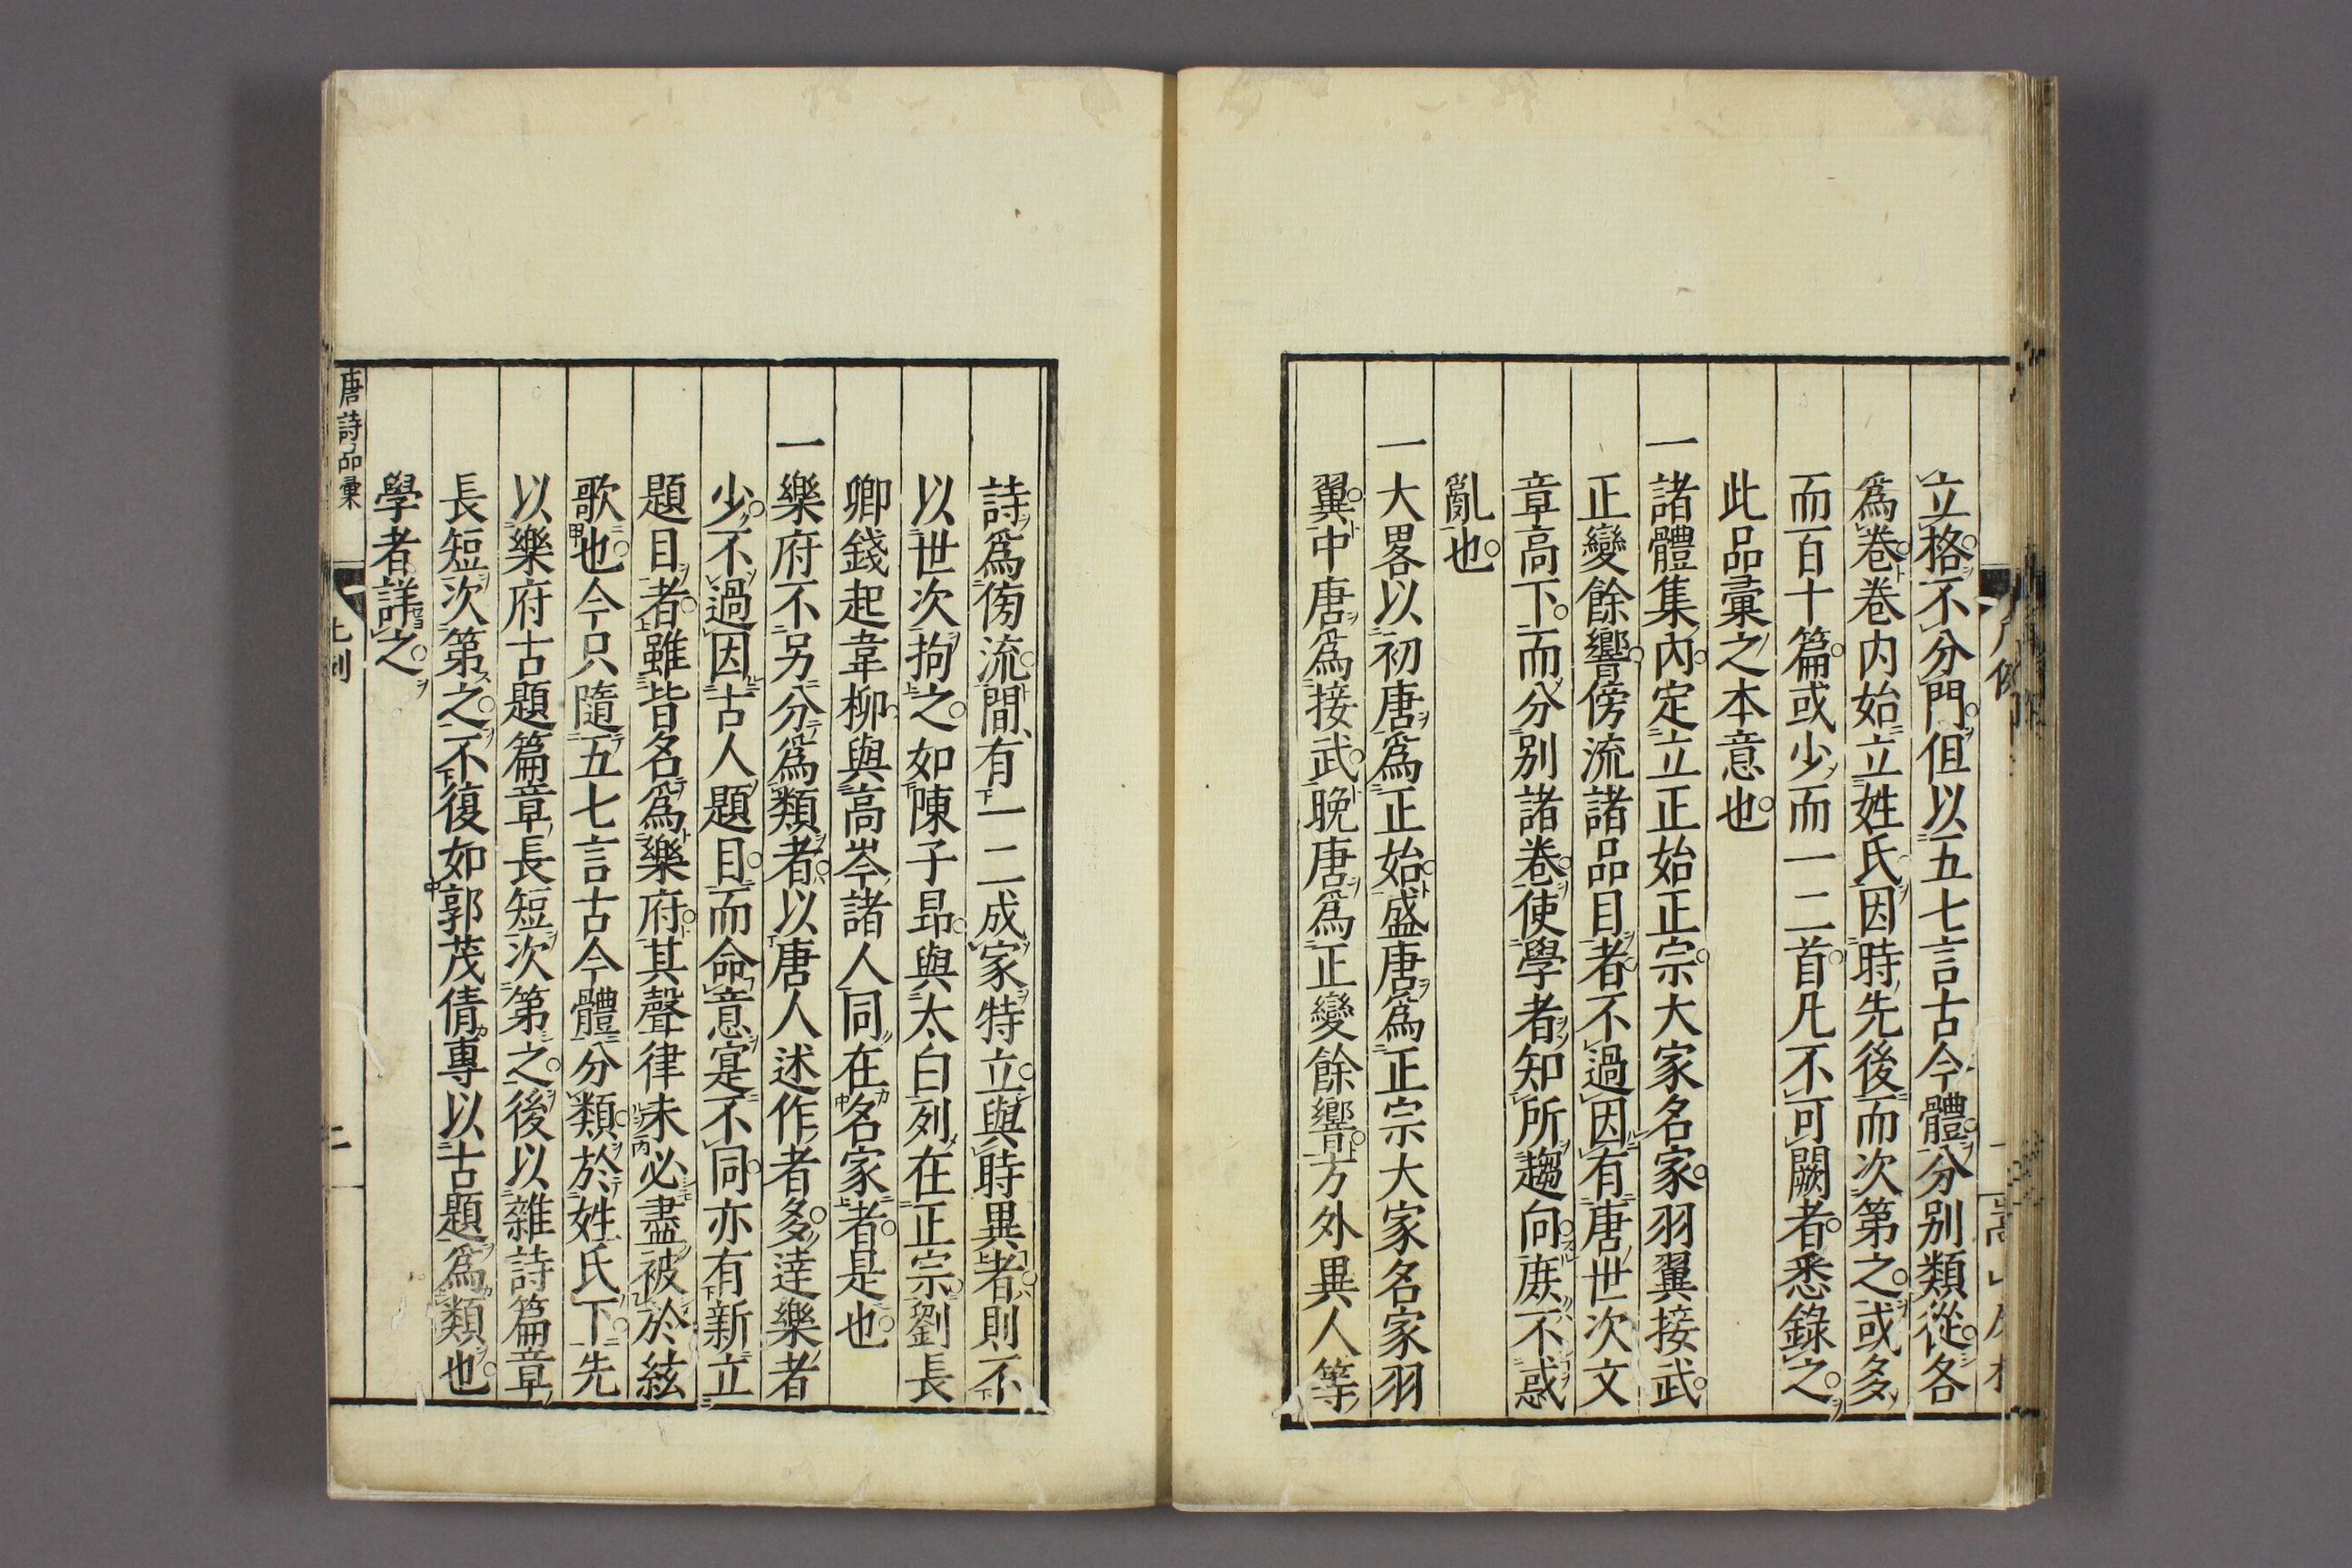 立格不分門但以五七言古今體分别類從各
爲卷卷内始立姓氏因時先後而次第之或多
而百十篇或少而一二首凡不可闕者悉錄之
此品彙之本意也
一諸體集内定立正始正宗大家名家羽翼接武
正變餘響傍流諸品目者不過因有唐世次文
章高下而分别諸卷使學者知所趨向庶不惑
亂也
一大畧以初唐爲正始盛唐爲正宗大家名家羽
翼中唐爲接武晚唐爲正變餘響方外異人等
詩爲傍流間有一二成家特立與時異者則不
以世次拘之如陳子昻與太白列在正宗劉長
卿錢起韋柳與高岑諸人同在名家者是也
一樂府不另分爲類者以唐人述作者多達樂者
少不過因古人題目而命意寔不同亦有新立
題目者雖皆名爲樂府其聲律未必盡被於絃
歌也今只隨五七言古今體分類於姓氏下先
以樂府古題篇章長短次第之後以雜詩篇章
長短次第之不復如郭茂倩專以古題爲類也
學者詳之
唐詩品彙
二